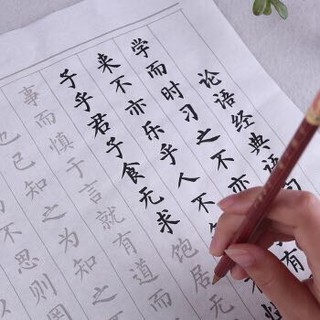 论语经典语句
学而时习之不亦
来不亦乐乎人不
子乎君子食无求饱居无
事而慎于言就有道而
也已知之为知之
不思则罔